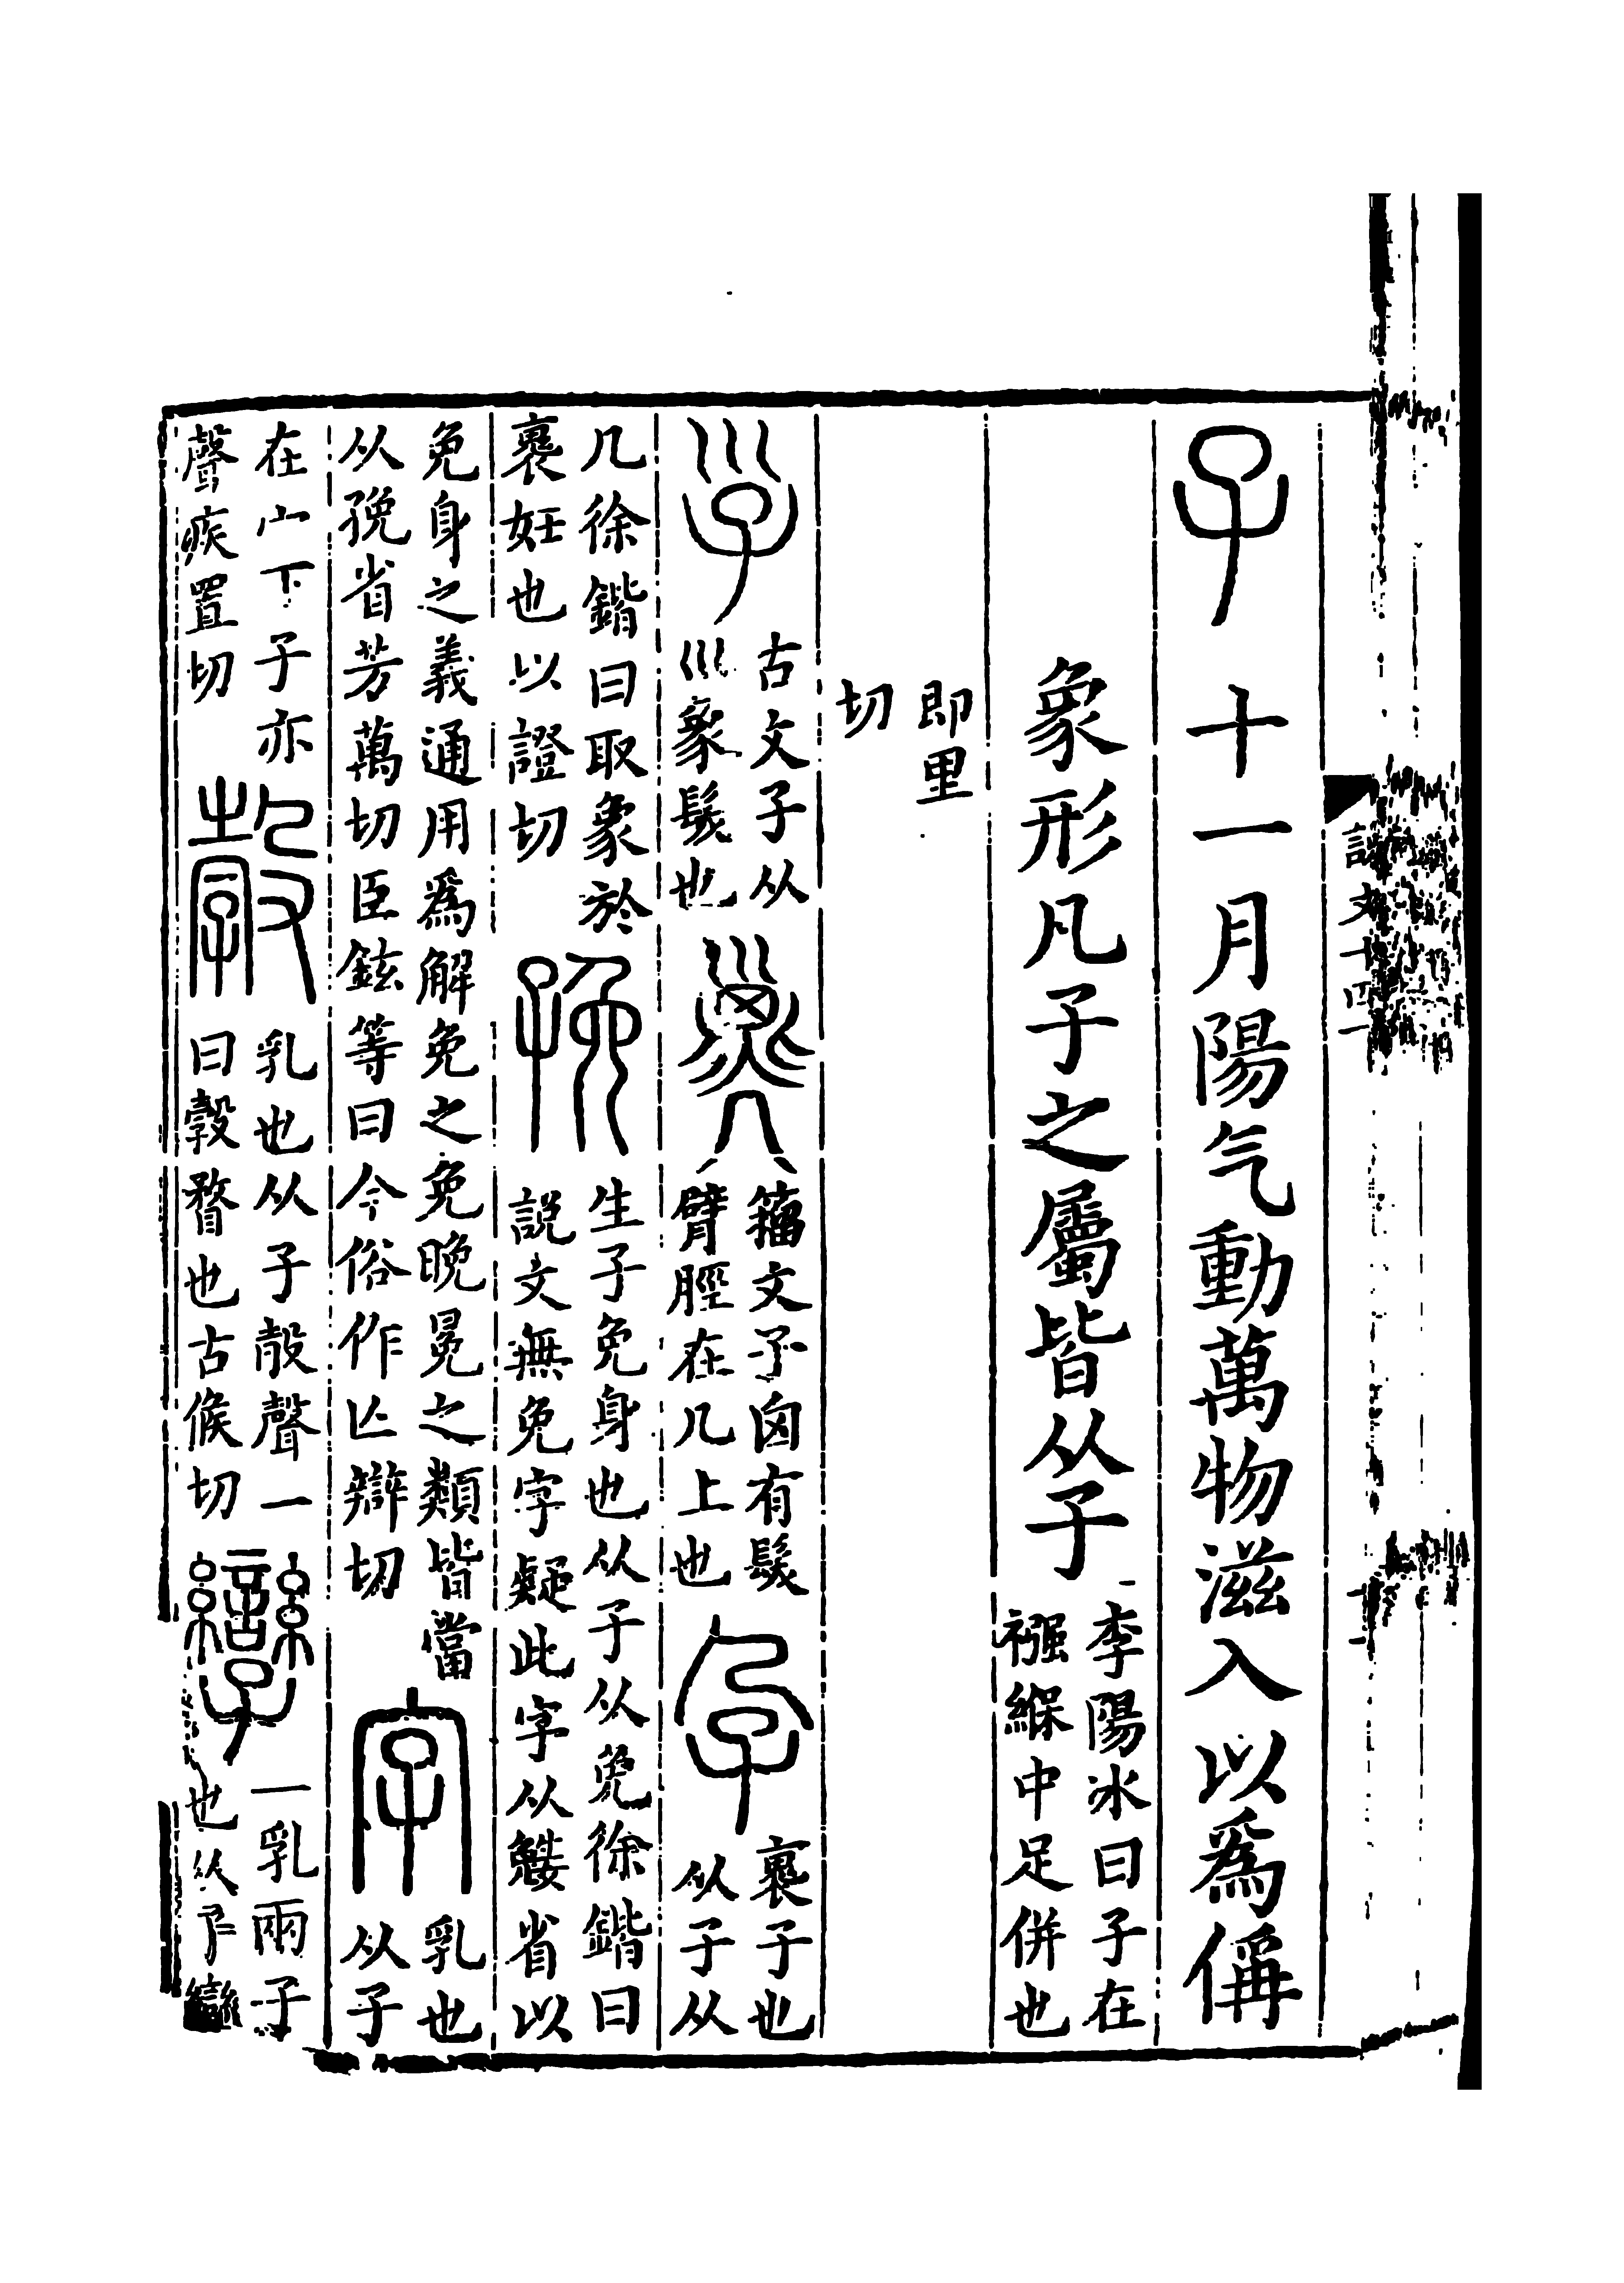 子 十一月陽气動萬物滋入以爲偁
象形凡子之屬皆从子 李陽冰曰子在
襁緥中足併也
即里
切
㜽 古文子从
巛象髮也 𡿹 籒文子囟有髮
臂脛在几上也 孕 褢子也
从子从
几徐鍇曰取象於
褢妊也以證切 㝃 生子免身也从子从免徐鍇曰
說文無免字疑此字从䰯省以
免身之義通用爲解免之免晚冕之類皆當
从㝃省芳萬切臣鉉等曰今俗作亡辯切 字 乳也
从子
在宀下子亦
聲疾置切 㝅 乳也从子㱿聲一
曰㝅瞀也古候切 孿 一乳兩子
也从子
說文十四